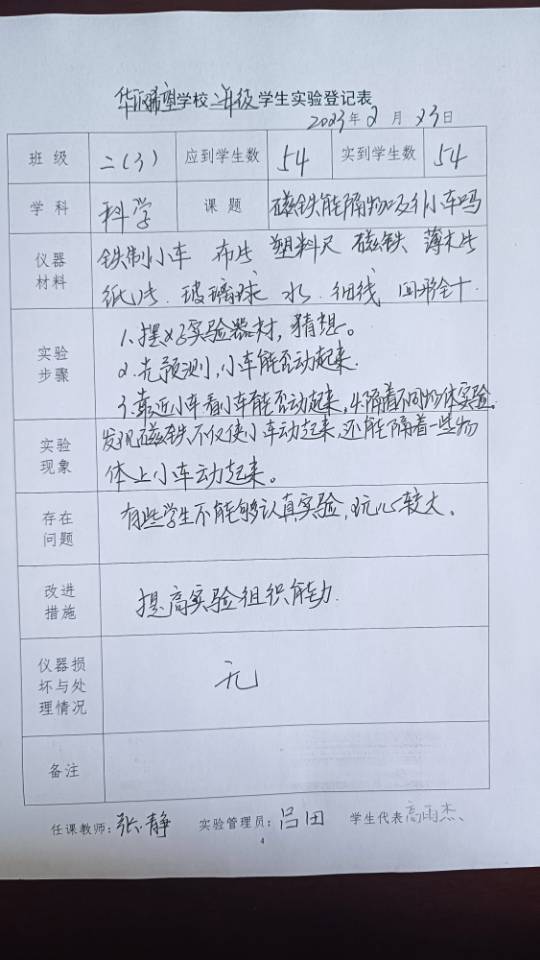 华润希望学校二年级学生实验登记表
2023年2月23日
班级 二(3) 应到学生数 54 实到学生数 54
学科 科学 课题 磁铁能隔物吸引小车吗
仪器材料 铁制小车 布片 塑料尺 磁铁、薄木片
纸片、玻璃球、水、细线、回形针.
实验步骤 1.摆好实验器材,猜想。
2.先预测,小车能否动起来.
3.靠近小车看小车能否动起来,4.隔着不同物体实验.
实验现象 发现磁铁不仅使小车动起来,还能隔着一些物
体上小车动起来。
存在问题 有些学生不能够认真实验,玩心较大。
改进措施 提高实验组织能力.
仪器损坏与处理情况 无
备注
任课教师:张静 实验管理员:吕田 学生代表 高雨杰
4